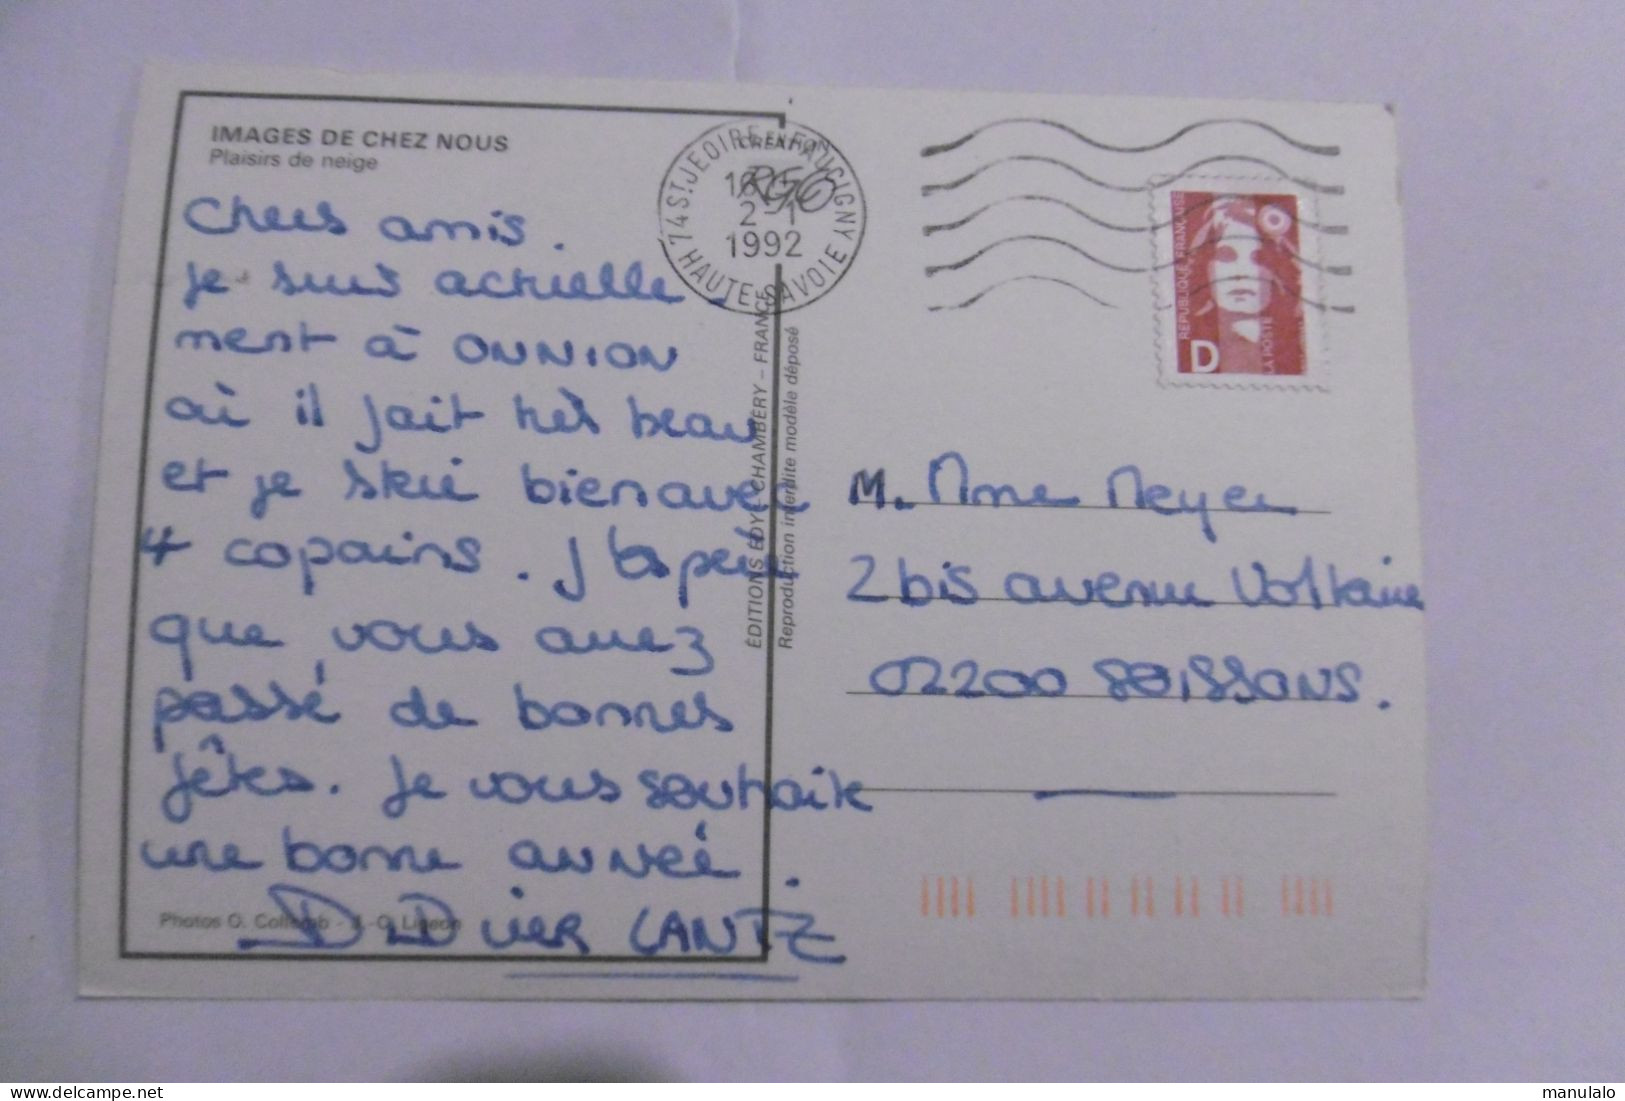 IMAGES DE CHEZ NOUS
Plaisirs de neige
Chers amis.
Je suis actuelle-
ment à ONNION
où il fait très beau
et je skie bien avec
4 copains. J'espère
que vous avez
passé de bonnes
fêtes. Je vous souhaite
une bonne année.
Didier LANTZ
Photos O. Collomb - J.-O. Ligeon
CRÉATION
74 ST JEOIRE EN FAUCIGNY
2-1
1992
HAUTE SAVOIE
ÉDITIONS EDY - CHAMBÉRY - FRANCE
Reproduction interdite modèle déposé
RÉPUBLIQUE FRANÇAISE
D
LA POSTE
M. Mme Meyer
2 bis avenue Voltaire
02200 SOISSONS.
delcampe.net
manulalo